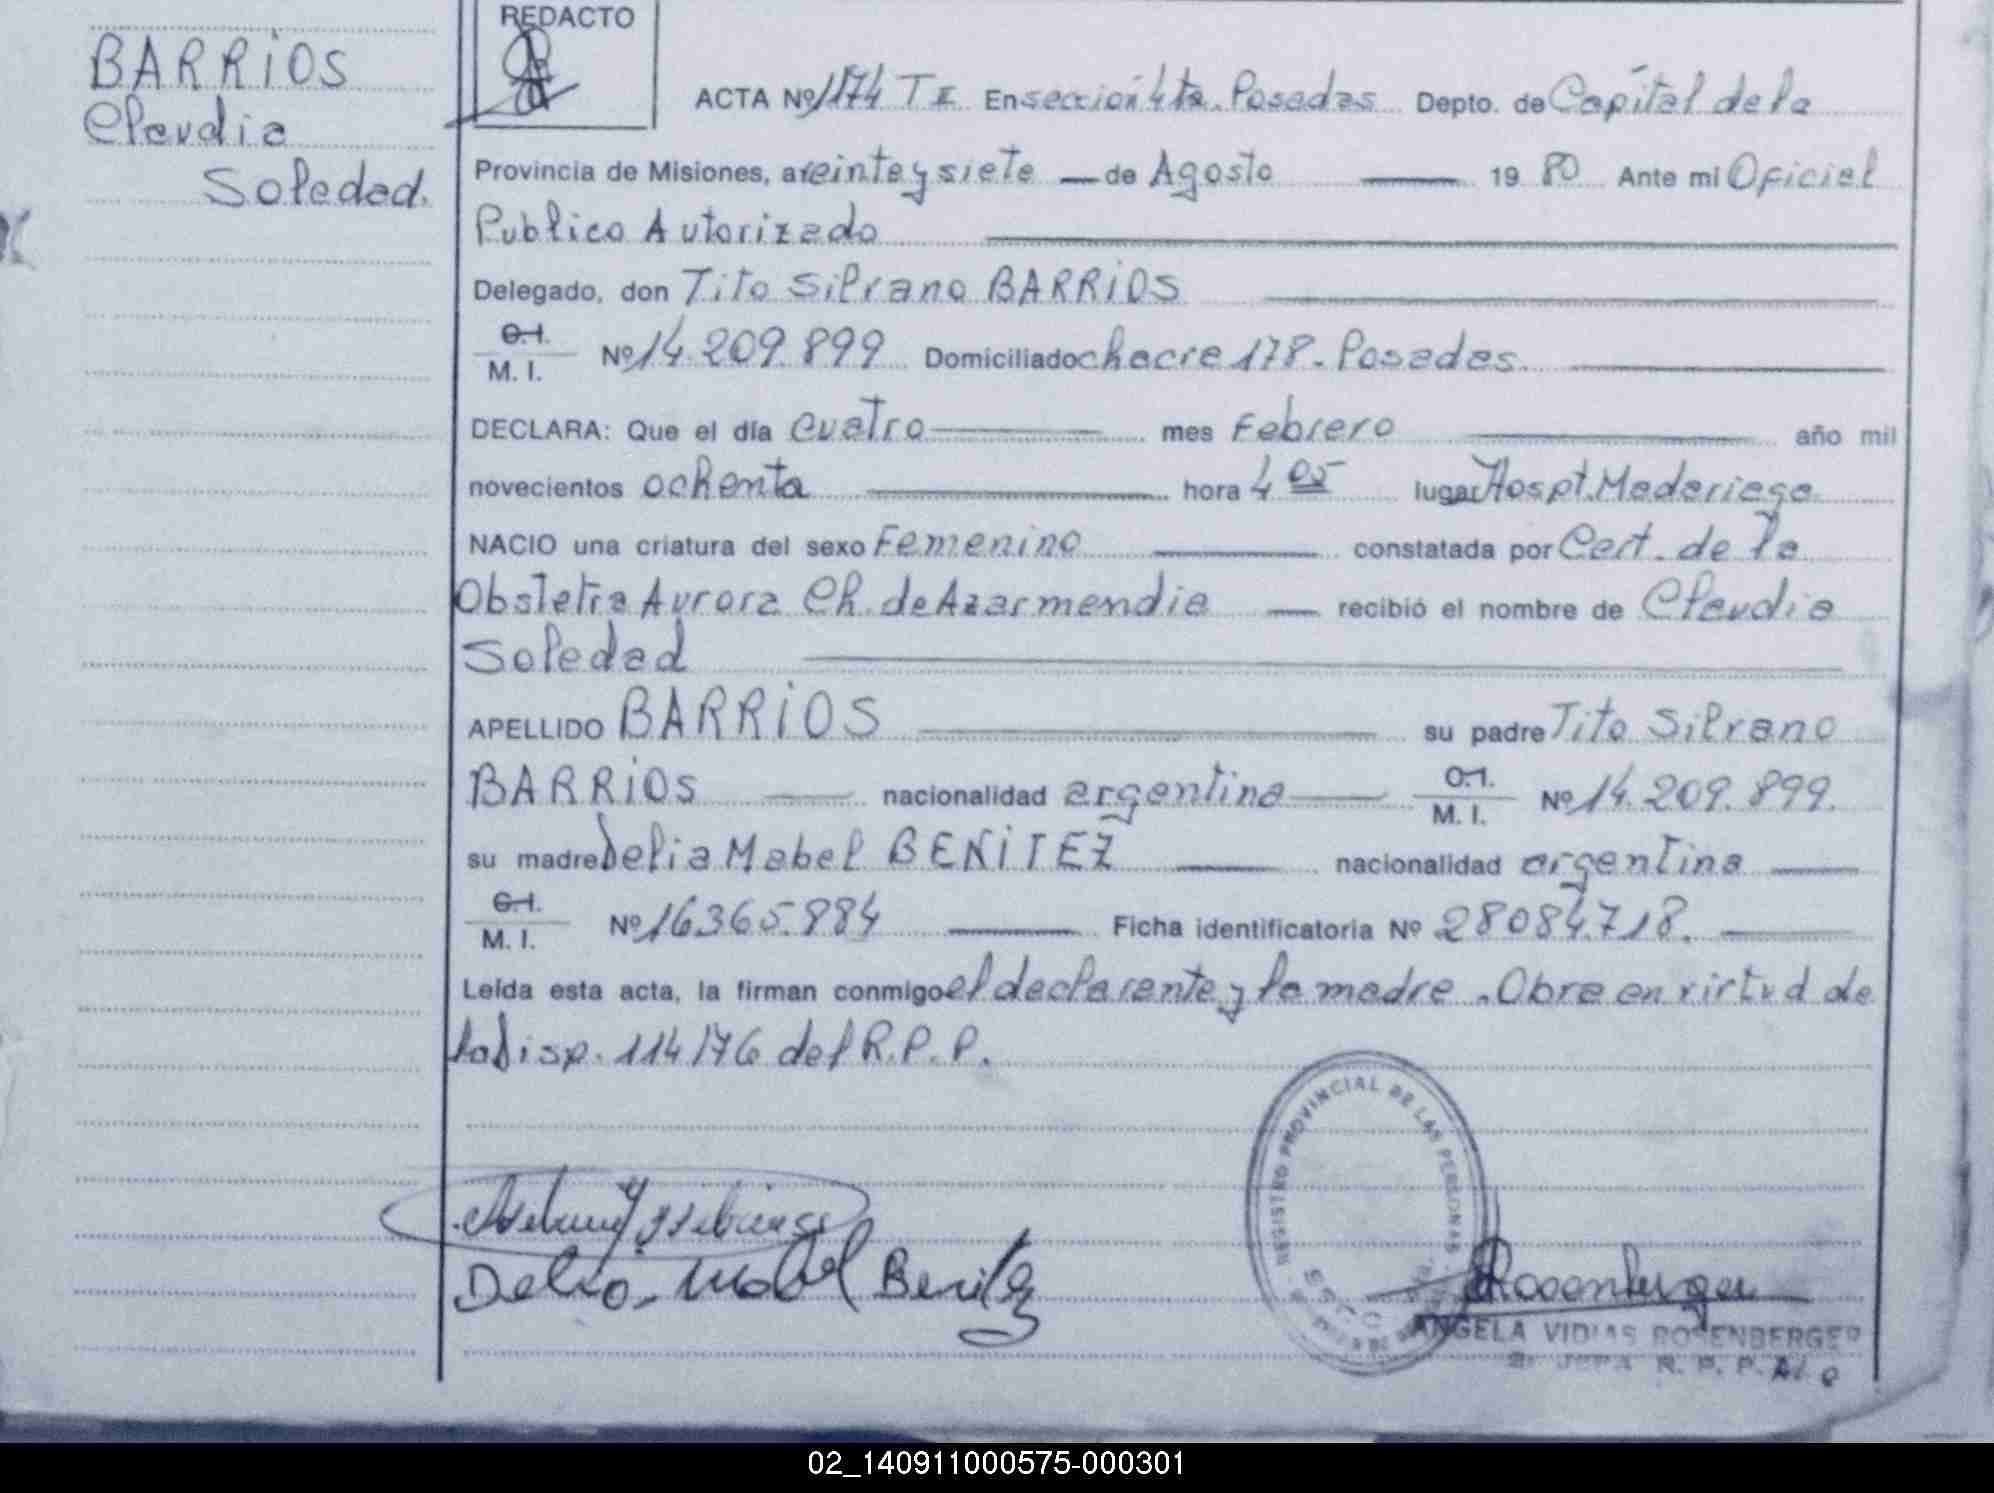 BARRIOS
Claudia
Soledad.
REDACTO
ACTA Nº 1174 T II En sección 4ta. Posadas Depto. de Capital de la
Provincia de Misiones, a veinte y siete de Agosto 19 80 Ante mi Oficial
Publico Autorizado
Delegado, don Tito Silvano BARRIOS
C.I.
M. I. Nº 14.209.899 Domiciliado chacra 178. Posadas.
DECLARA: Que el día cuatro mes Febrero año mil
novecientos ochenta hora 4 05 lugar Hospt. Madariaga
NACIO una criatura del sexo Femenino constatada por Cert. de la
Obstetra Aurora Ch. de Azarmendia recibió el nombre de Claudia
Soledad
APELLIDO BARRIOS su padre Tito Silvano
BARRIOS nacionalidad argentina C.I.
M. I. Nº 14.209.899.
su madre Delia Mabel BENITEZ nacionalidad argentina
C.I.
M. I. Nº 16365.884 Ficha identificatoria Nº 28084.718.
Leída esta acta, la firman conmigo el declarante y la madre. Obra en virtud de
la Disp. 114/76 del R.P.P.
REGISTRO PROVINCIAL DE LAS PERSONAS
Delia Mabel Benitez
Rosenberger
ANGELA VIDIAS ROSENBERGER
JEFA R. P. P.
02_140911000575-000301